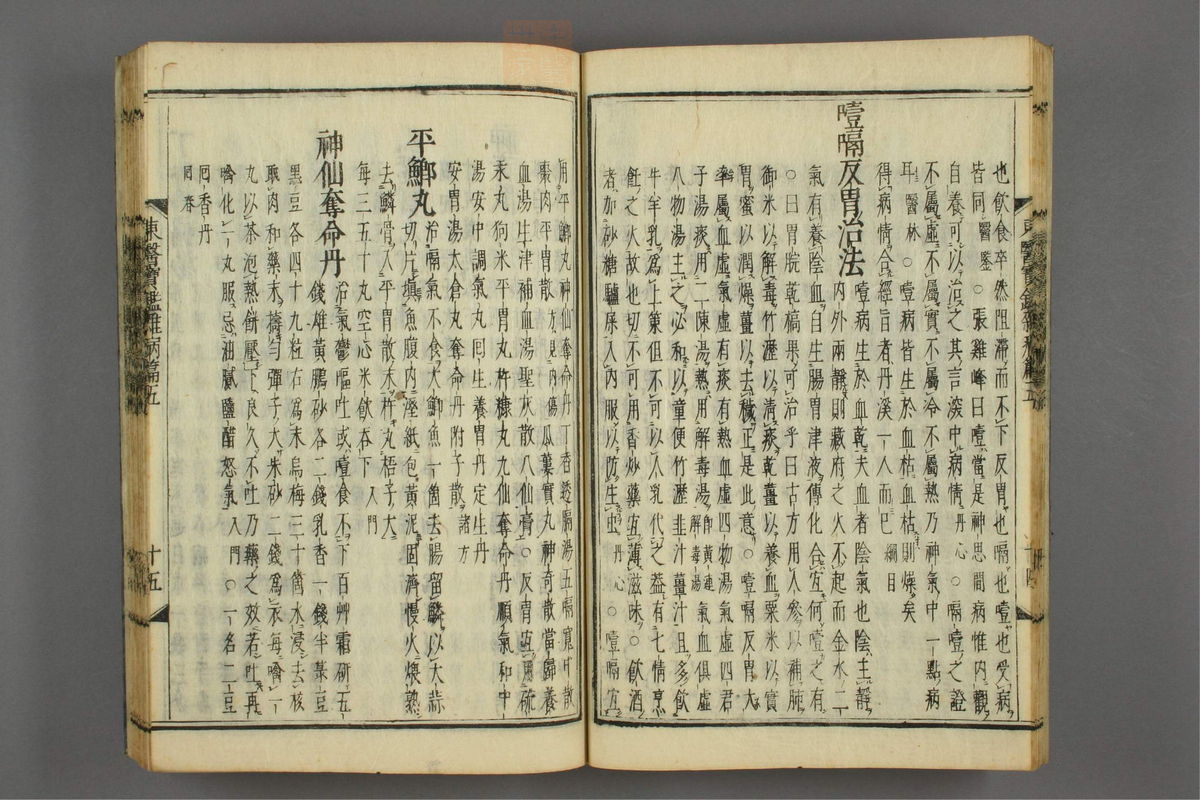 也飲食卒然阻滯而不下反胃也嗝也噎也受病
皆同醫鑒○張雞峰曰噎當是神思間病惟內觀
自養可以治之其言深中病情丹心○嗝噎之證
不屬虛不屬實不屬冷不屬熱乃神氣中一點病
耳醫林○噎病皆生於血枯血枯則燥矣
得病情合經旨者丹溪一人而已綱目
噎嗝反胃治法
內外兩靜則藏府之火不起而金水二
噎病生於血乾夫血者陰氣也陰主靜
氣有養陰血自生腸胃津液傳化合宜何噎之有
○曰胃脘乾槁果可治乎曰古方用人參以補肺
御米以解毒竹瀝以淸痰乾薑以養血粟米以實
胃蜜以潤燥薑以去穢正是此意○噎嗝反胃大
率血虛氣虛有痰有熱血虛四物湯氣虛四君
子湯痰用二陳湯熱用解毒湯卽黃連解毒湯氣血俱虛
八物湯主之必和以童便竹瀝韭汁薑汁且多飲
牛羊乳爲上策但不可以人乳代之盖有七情烹
飪之火故也切不可用香炒藥宜薄滋味○飲酒
者加砂糖驢尿入內服以防生虫丹心○噎嗝宜
用平鰤丸神仙奪命丹丁香透膈湯五嗝寬中散
棗肉平胃散方見內傷瓜蔞實丸神奇散當歸養
血湯生津補血湯聖灰散八仙膏○反胃宜用硫
汞丸狗米平胃丸杵糠丸九仙奪命丹順氣和中
湯安中調氣丸囘生養胃丹定生丹
安胃湯太倉丸奪命丹附子散諸方
平鰤丸
治嗝氣不食大鯽魚一箇去腸留鱗以大蒜
切片塡魚腹內溼紙包黃泥固濟慢火煨熟
去鱗骨入平胃散末杵丸梧子大
每三五十丸空心米飮呑下入門
神仙奪命丹
治氣鬱嘔吐或噎食不下百艸霜硏五
錢雄黃鵬砂各二錢乳香一錢半菉豆
黑豆各四十九粒右爲末烏梅三十箇水浸去核
取肉和藥末擣勻彈子大朱砂二錢爲衣每噙一
丸以茶泡熱餠壓下良久不吐乃藥之效若吐再
噙化一丸服忌油膩鹽醋怒氣入門○一名二豆
囘香丹
囘春
東醫寶鑑雜病篇五
十五